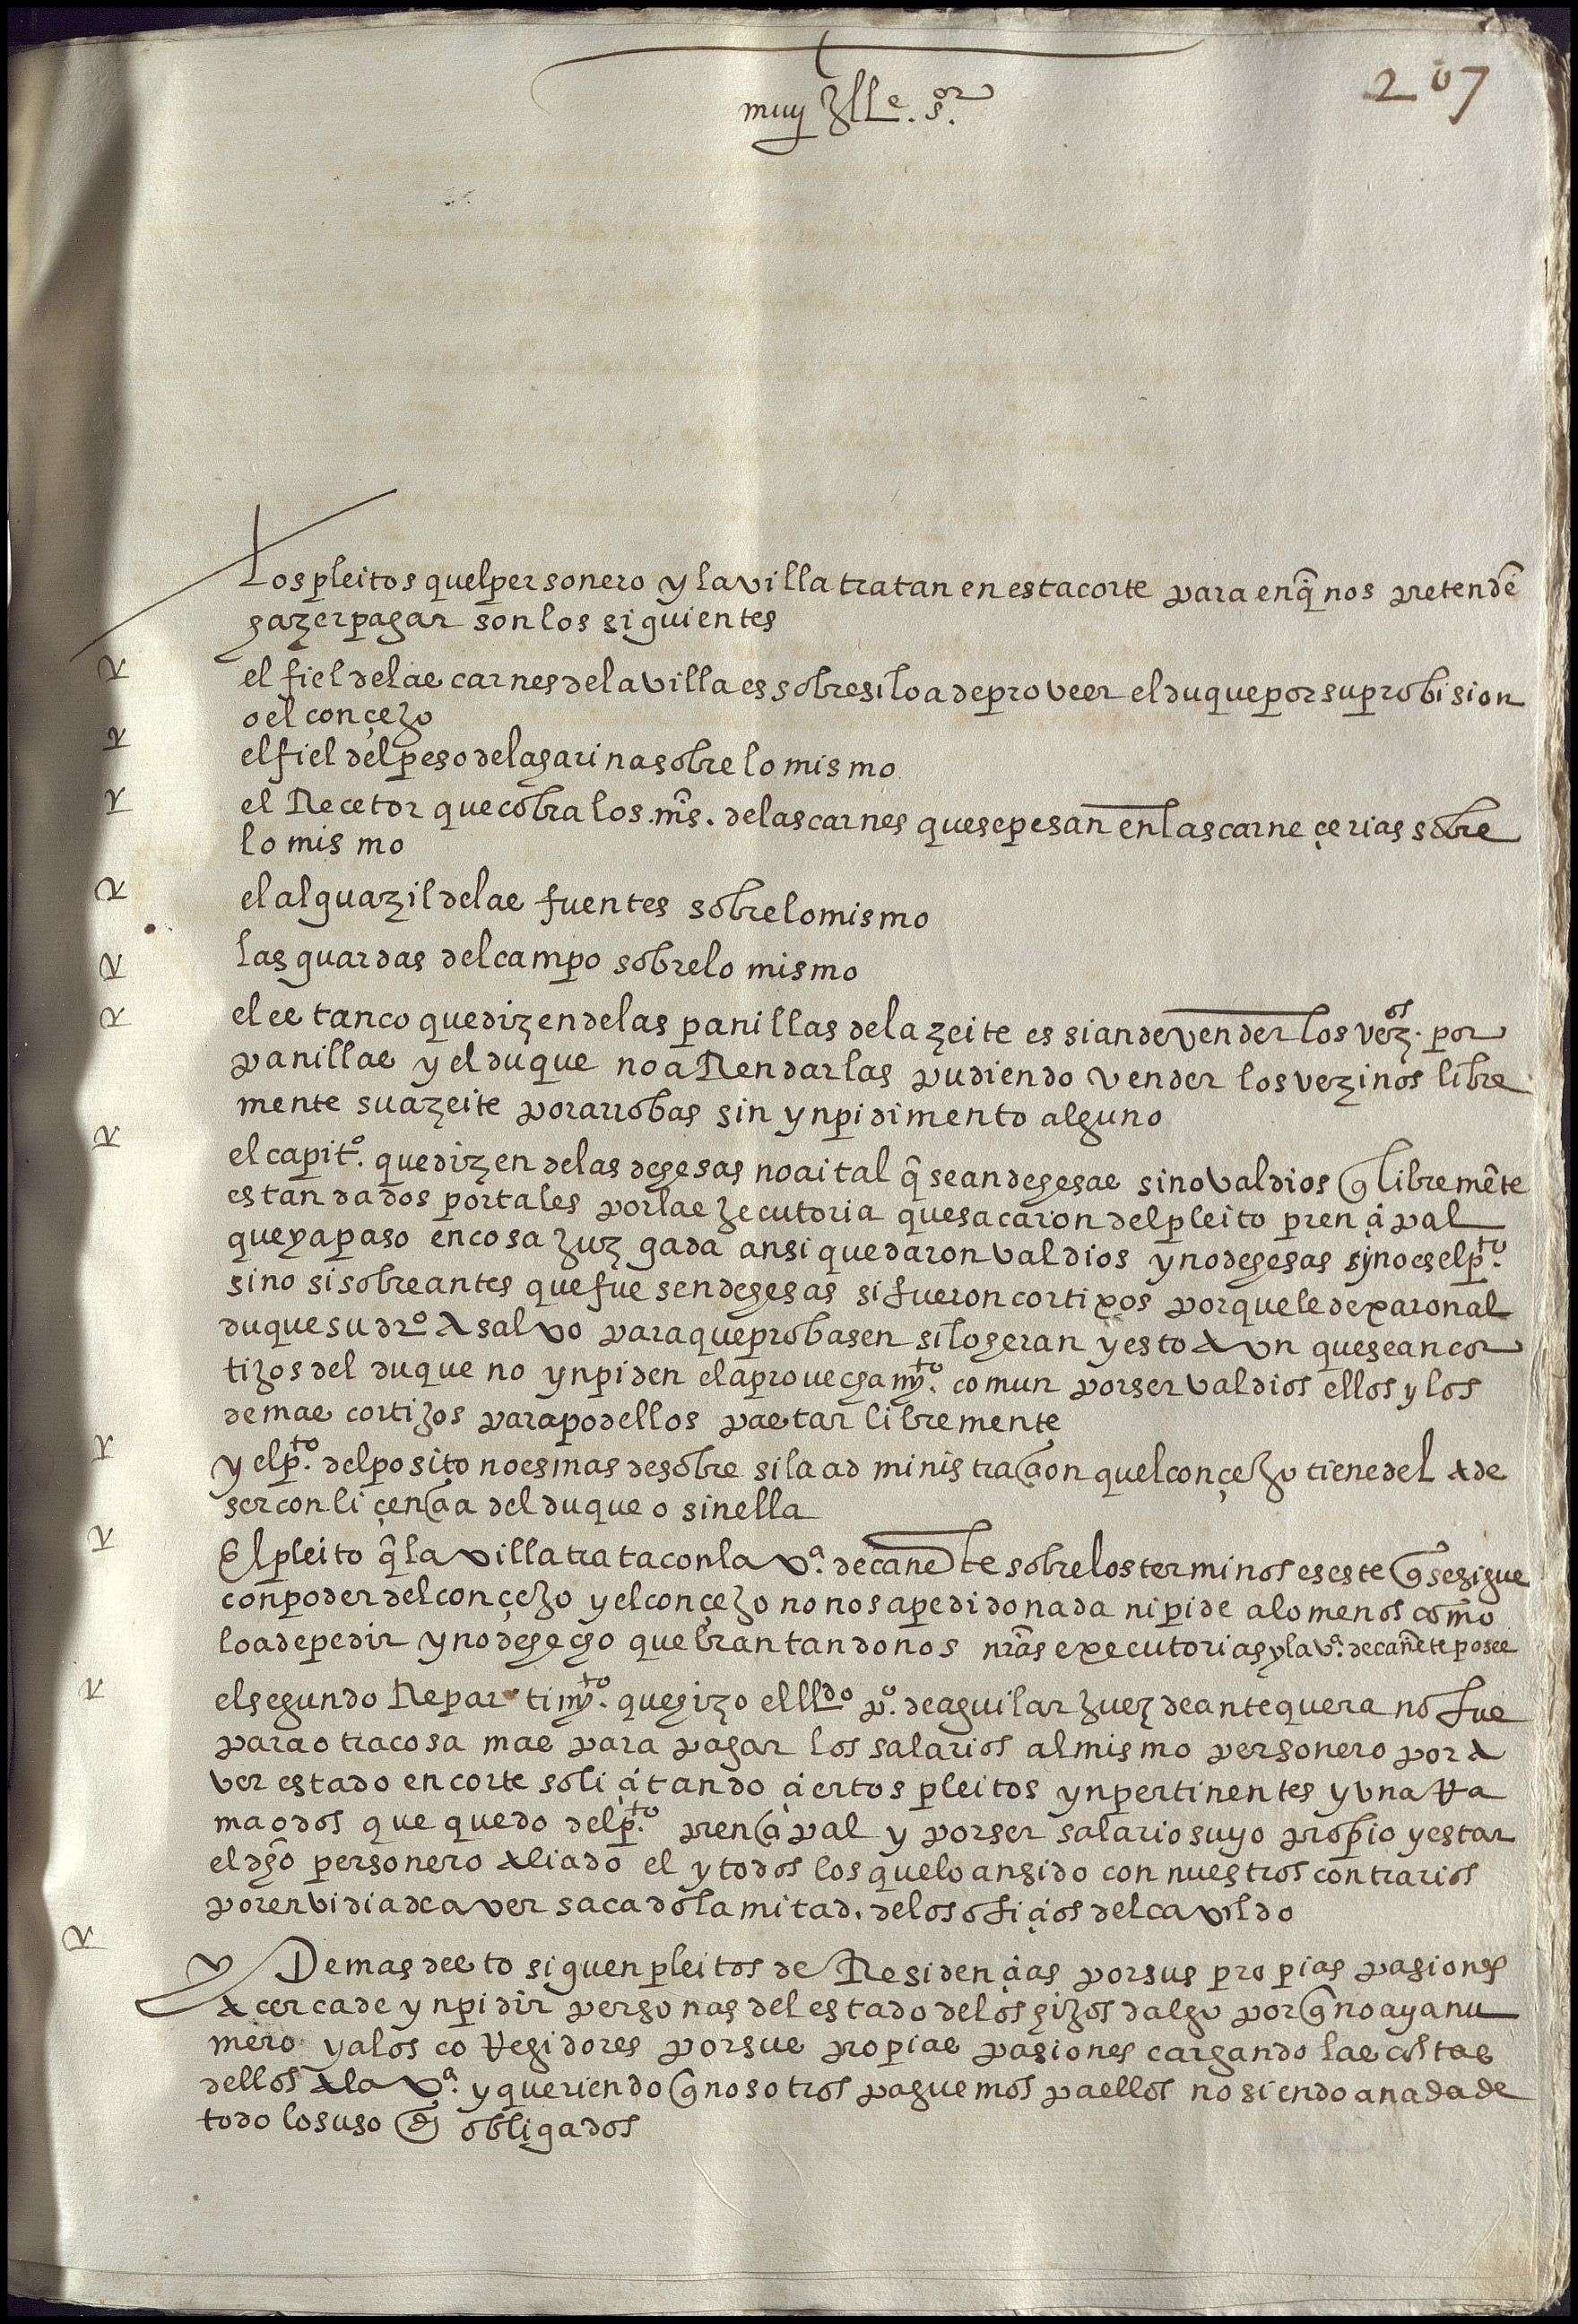 207
muy Ille. sor.
Los pleitos quel personero y la villa tratan en esta corte para en q̃ nos pretendẽ
hazer pagar son los siguientes
el fiel de las carnes de la villa es sobre si lo a de proveer el duque por su probision
o el conçejo
el fiel del peso de la harina sobre lo mismo
el Recetor que cobra los mr̃s. de las carnes que se pesan en las carneçerias sobre
lo mismo
el alguazil de las fuentes sobre lo mismo
las guardas del campo sobre lo mismo
el estanco que dizen de las panillas del azeite es si an de vender los vezos. por
panillas y el duque no aRendarlas pudiendo vender los vezinos libre
mente su azeite por arrobas sin ynpidimento alguno
el capito. que dizen de las dehesas no ai tal q̃ sean dehesas sino valdios q̃ libremẽte
estan dados por tales por la ejecutoria que sacaron del pleito prençipal
que ya paso en cosa juzgada ansi quedaron valdios y no dehesas sy no es el pto.
sino si sobre antes que fuesen dehesas si fueron cortixos porque le dexaron al
duque su dro. a salvo para que probasen si lo heran y esto aun que sean cor
tijos del duque no ynpiden el aprovechamyto. comun por ser valdios ellos y los
demas cortijos para podellos pastar libremente
y el pto. del posito no es mas de sobre si la administraçion quel conçejo tiene del a de
ser con liçençia del duque o sin ella
El pleito q̃ la villa trata con la va. de cañete sobre los terminos es este q̃ se sigue
con poder del conçejo y el conçejo no nos a pedido nada ni pide a lo menos como
lo a de pedir y no de hecho quebrantandonos nrãs executorias y la va. de cañete posee
el segundo Repartimyto. que hizo el lldo po. de aguilar juez de antequera no fue
para otra cosa mas para pagar los salarios al mismo personero por a
ver estado en corte soliçitando çiertos pleitos ynpertinentes y una rra
ma o dos que quedo del pto. prençipal y por ser salario suyo propio y estar
el dho personero aliado el y todos los que lo an sido con nuestros contrarios
por envidia de aver sacado la mitad. de los ofiçios del cavildo
Y Demas desto siguen pleitos de Residençias por sus propias pasiones
açerca de ynpidir personas del estado de los hijos dalgo por q̃ no aya nu
mero y a los coRegidores por sus propias pasiones cargando las costas
dellos a la va. y queriendo q̃ nosotros paguemos pa ellos no siendo a nada de
todo lo suso dho obligados